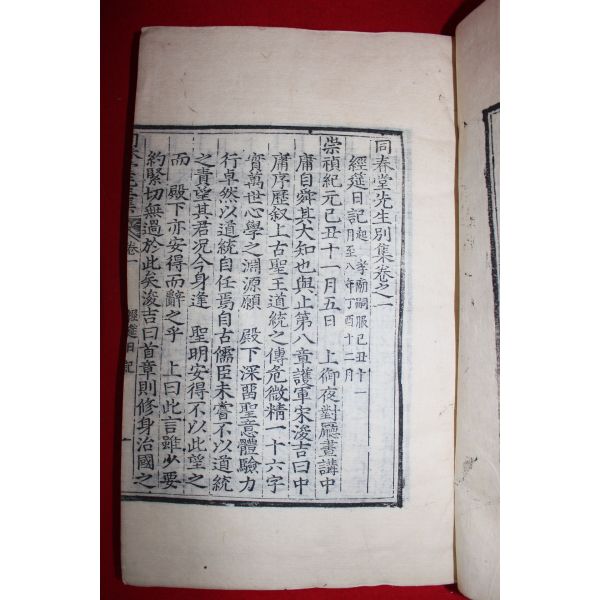 同春堂先生別集卷之一
經筵日記起 孝廟嗣服己丑十一
月至八年丁酉十二月
崇禎紀元己丑十一月五日 上御夜對廳晝講中
庸自舜其大知也與止第八章護軍宋浚吉曰中
庸序歷叙上古聖王道統之傳危微精一十六字
實萬世心學之淵源願 殿下深留聖意體驗力
行卓然以道統自任焉自古儒臣未嘗不以道統
之責望其君况今身逢 聖明安得不以此望之
而 殿下亦安得而辭之乎 上曰此言雖少要
約緊切無過於此矣浚吉曰首章則修身治國之
卷一
經筵日記
一